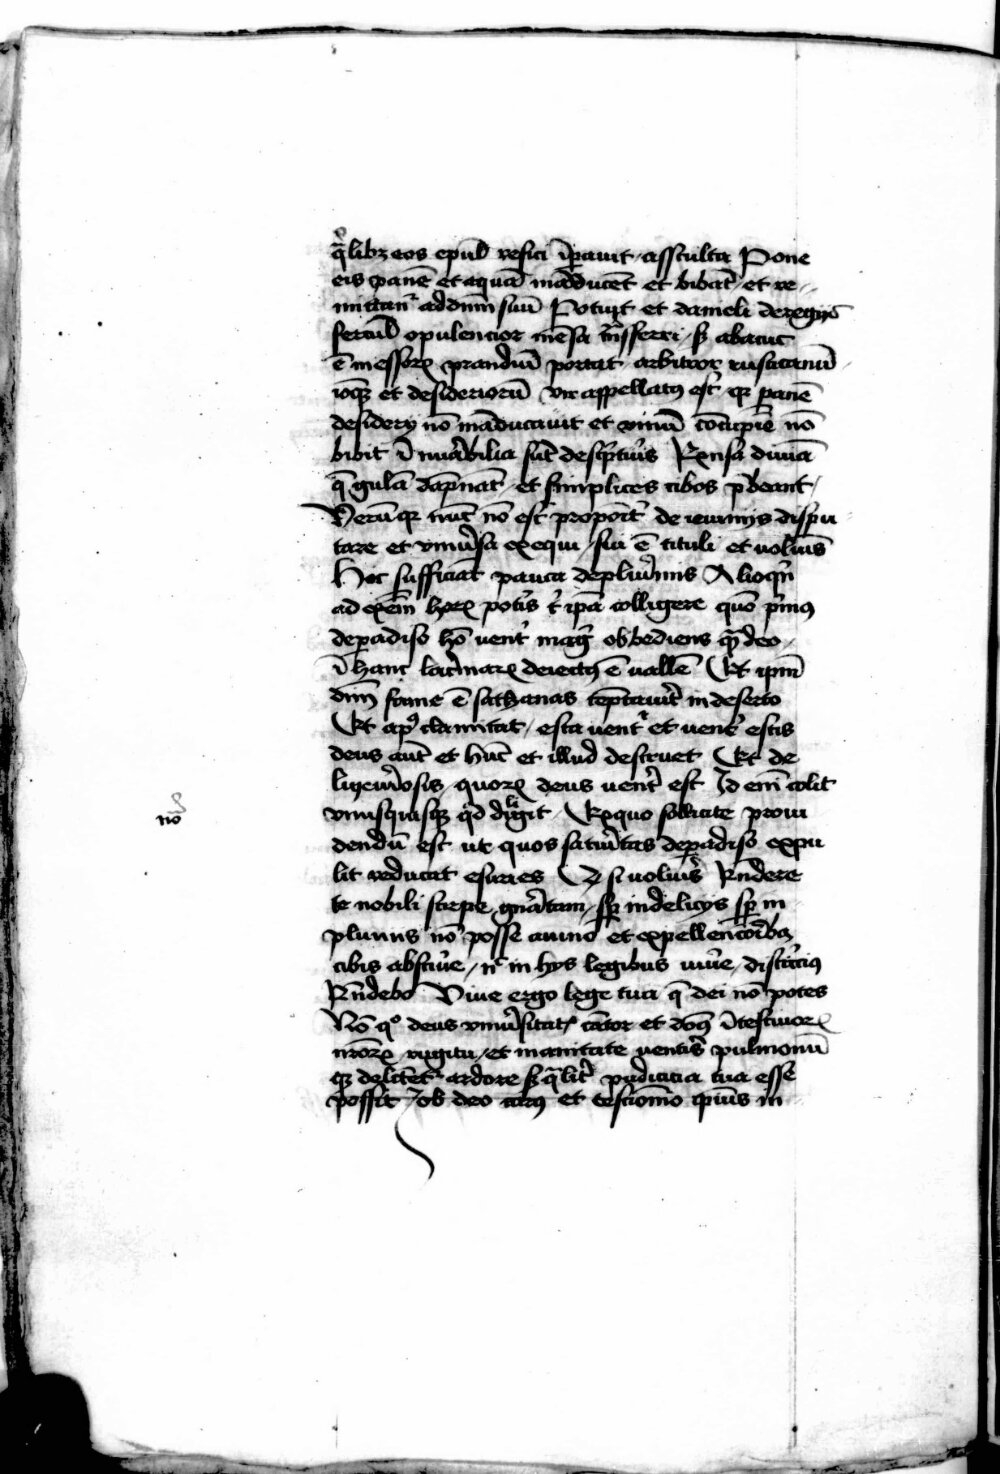 q̄libʒ eos epul̄ refici īpauit / assculta Pone
eis panē et aquā māducēt et bibāt / et re-
mittant᷑ ad dnm̄ suū Potuit et danieli de regijs
fercul̄ opulencior mēsa trāsferri / sʒ abacuc
ē messorꝝ prandiū portat arbitror rusticanū
ioqʒ et desideriorū vir appellatꝰ est / qr panē
desiderij nō māducauit et vinū cōcupiē nō
bibit Innūabilia sūt desc̄pturis Rōnsa diuina
q̄ gulā dāpnāt / et simplices cibos p̄beant /
Verū qr nūc nō est propoīt de ieiunijs dispu
tare et vniūsa exequi / sui ē tituli et uolumīs
Hec sufficiāt pauca de plurimis Alioqn̄
ad exēm̄ horꝝ potīs t̄ ipā colligere quō p̄mꝰ
de paradiso hō uentī maḡ obbediens quā deo /
ī hanc lac̄marꝝ deiectꝰ ē uallē Et ipm̄
dnm̄ fame ē sathanas teptauīt in deserto
Et apꝰ clamitat / esca uentī et uentē escis
deus aūt et hūc et illud destruet Et de
luxeriosis / quorꝝ deus uentē est Id enī colit
vnusquisqʒ qd diligit / Ex quo sollicite proui
dendū est ut quos saturitas de paradiso expu
lit reducat esuries Qd si uolueīs Rn̄dere
te nobili stirpe gn̄atam / sp̄ in delicijs sp̄ in
plumis nō posse a uino et expellencōibʒ
cibis abstiē / nc̄ in hijs legibus viuē / districciꝰ
Rn̄debo Viue ergo lege tua q̄ dei nō potes
Nō qͦ deus vniūsitatꝭ cātor et dn̄s ītestinorꝝ
nrōrꝝ rugitu / et inanitate uentīs pulmonū
qʒ delc̄tet᷑ ardore sʒ q̄ alitī pudicicia tua esse
possit Job deo carꝰ et testiomō ipius in
nō